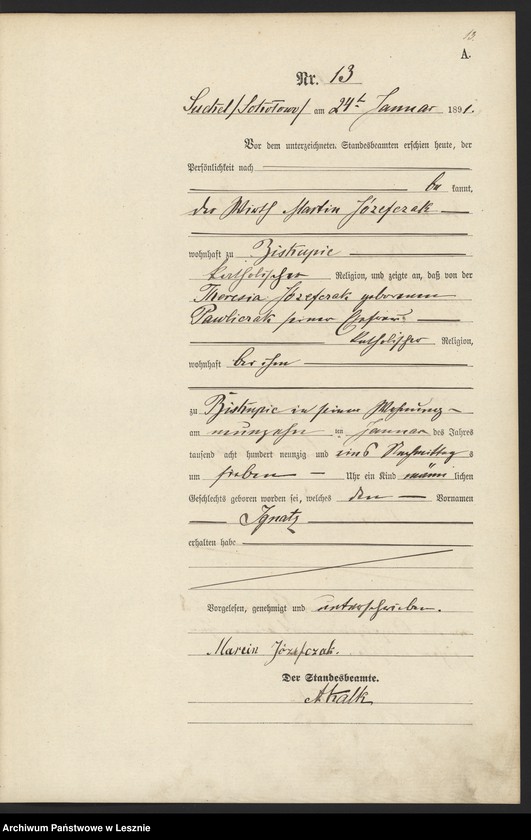 13.
A.
Nr. 13
Suchel/Sokolowo/ am 24t Januar 1891.
Vor dem unterzeichneten Standesbeamten erschien heute, der
Persönlichkeit nach
be kannt,
der Wirth Martin Józefczak
wohnhaft zu Biskupic
katholischer Religion, und zeigte an, daß von der
Theresia Józefczak geborenen
Pawliczak seiner Ehefrau
katholischer Religion,
wohnhaft bei ihm
zu Biskupic in seiner Wohnung
am neunzehn ten Januar des Jahres
tausend acht hundert neunzig und eins Nachmittag s
um sieben Uhr ein Kind männ lichen
Geschlechts geboren worden sei, welches den Vornamen
Ignatz
erhalten habe
Vorgelesen, genehmigt und unterschrieben.
Marcin Józefczak.
Der Standesbeamte.
AKalk
Archiwum Państwowe w Lesznie